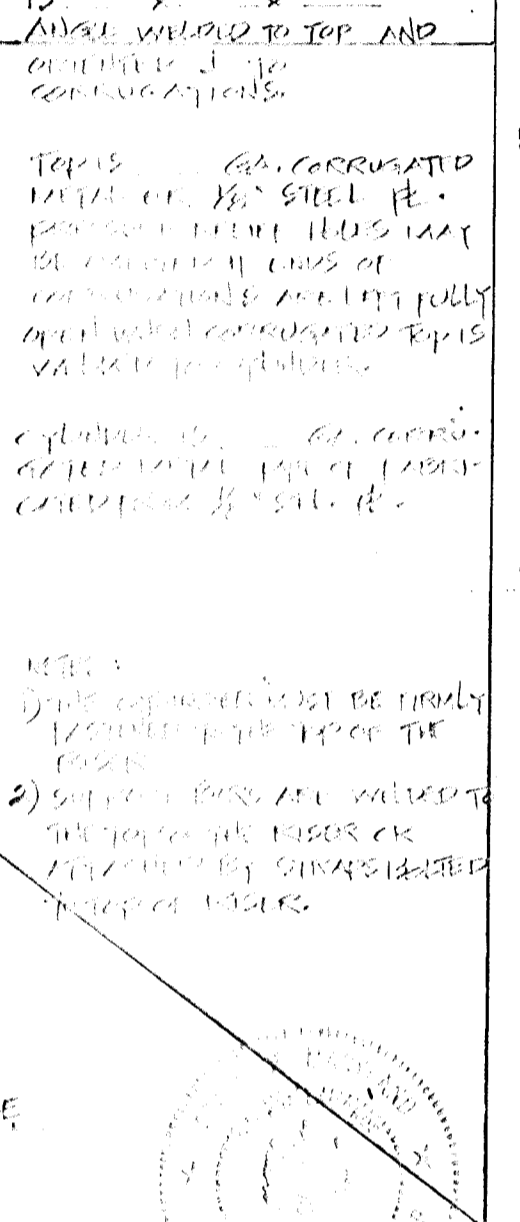 ANGLE WELDED TO TOP AND
ORIENTED ⊥ TO
CORRUGATIONS.
TOP IS GA. CORRUGATED
METAL OR 1/8" STEEL PL.
PRESSURE RELIEF HOLES MAY
BE OMITTED IF ENDS OF
CORRUGATIONS ARE LEFT FULLY
OPEN WHEN CORRUGATED TOP IS
CYLINDER IS GA. CORRU-
GATED METAL PIPE OR FABRI-
CATED FROM 1/8" STL. PL.
NOTES:
1) THE CYLINDER MUST BE FIRMLY
FASTENED TO THE TOP OF THE
RISER
2) SUPPORT BARS ARE WELDED TO
THE TOP OF THE RISER OR
ATTACHED BY STRAPS BOLTED
TO TOP OF RISER.